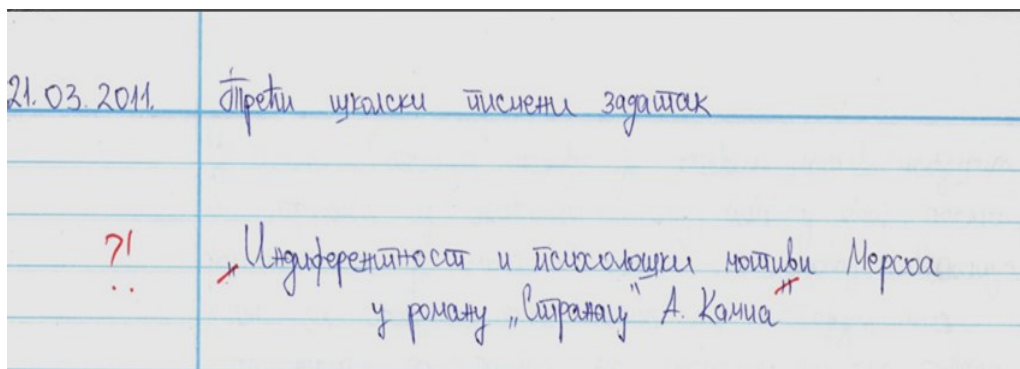 21.03.2011. Трећи школски писмени задатак
?! „Индиферентност и психолошки мотиви Мерсоа
у роману „Странац" А. Камиа"